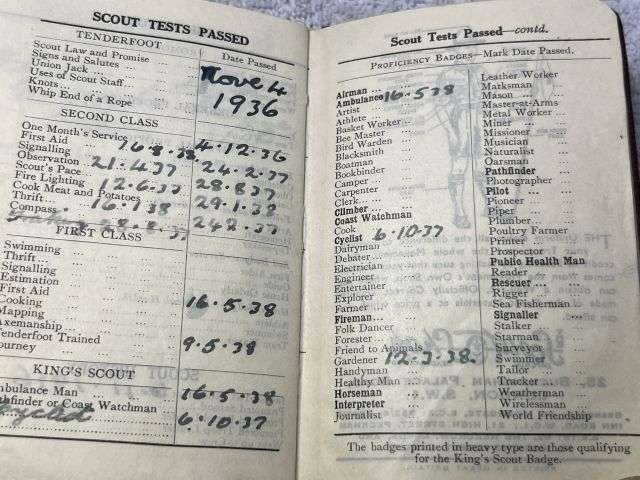 SCOUT TESTS PASSED
TENDERFOOT
Date Passed
Scout Law and Promise ...
Signs and Salutes ...
Union Jack ...
Uses of Scout Staff...
Knots...
Whip End of a Rope
Nove 4
1936
SECOND CLASS
One Month's Service
First Aid 4.12.36
Signalling
Observation 21.4.37 24.2.37
Scout's Pace
Fire Lighting 12.6.37 28.8.37
Cook Meat and Potatoes
Thrift... 16.1.38 29.1.38
Compass
FIRST CLASS
Swimming ...
Thrift ...
Signalling
Estimation
First Aid
Cooking 16.5.38
Mapping
Axemanship ...
Tenderfoot Trained
Journey ... 9.5.38
KING'S SCOUT
Ambulance Man 16.5.38
Pathfinder or Coast Watchman
Cyclist 6.10.37
Scout Tests Passed—contd.
PROFICIENCY BADGES—Mark Date Passed.
Airman ...
Ambulance 16.5.38
Artist
Athlete ...
Basket Worker...
Bee Master
Bird Warden
Blacksmith
Boatman
Bookbinder
Camper ...
Carpenter
Clerk...
Climber ...
Coast Watchman
Cook
Cyclist 6.10.37
Dairyman
Debater ...
Electrician
Engineer
Entertainer
Explorer
Farmer ...
Fireman...
Folk Dancer
Forester...
Friend to Animals
Gardener 12.3.38.
Handyman
Healthy Man ...
Horseman
Interpreter
Journalist
Leather Worker
Marksman
Mason ...
Master-at-Arms
Metal Worker ...
Miner ...
Missioner
Musician
Naturalist
Oarsman
Pathfinder
Photographer
Pilot ...
Pioneer
Piper
Plumber
Poultry Farmer
Printer ...
Prospector
Public Health Man
Reader ...
Rescuer ...
Rigger
Sea Fisherman
Signaller
Stalker
Starman
Surveyor
Swimmer
Tailor ...
Tracker ...
Weatherman
Wirelessman
World Friendship
The badges printed in heavy type are those qualifying
for the King's Scout Badge.